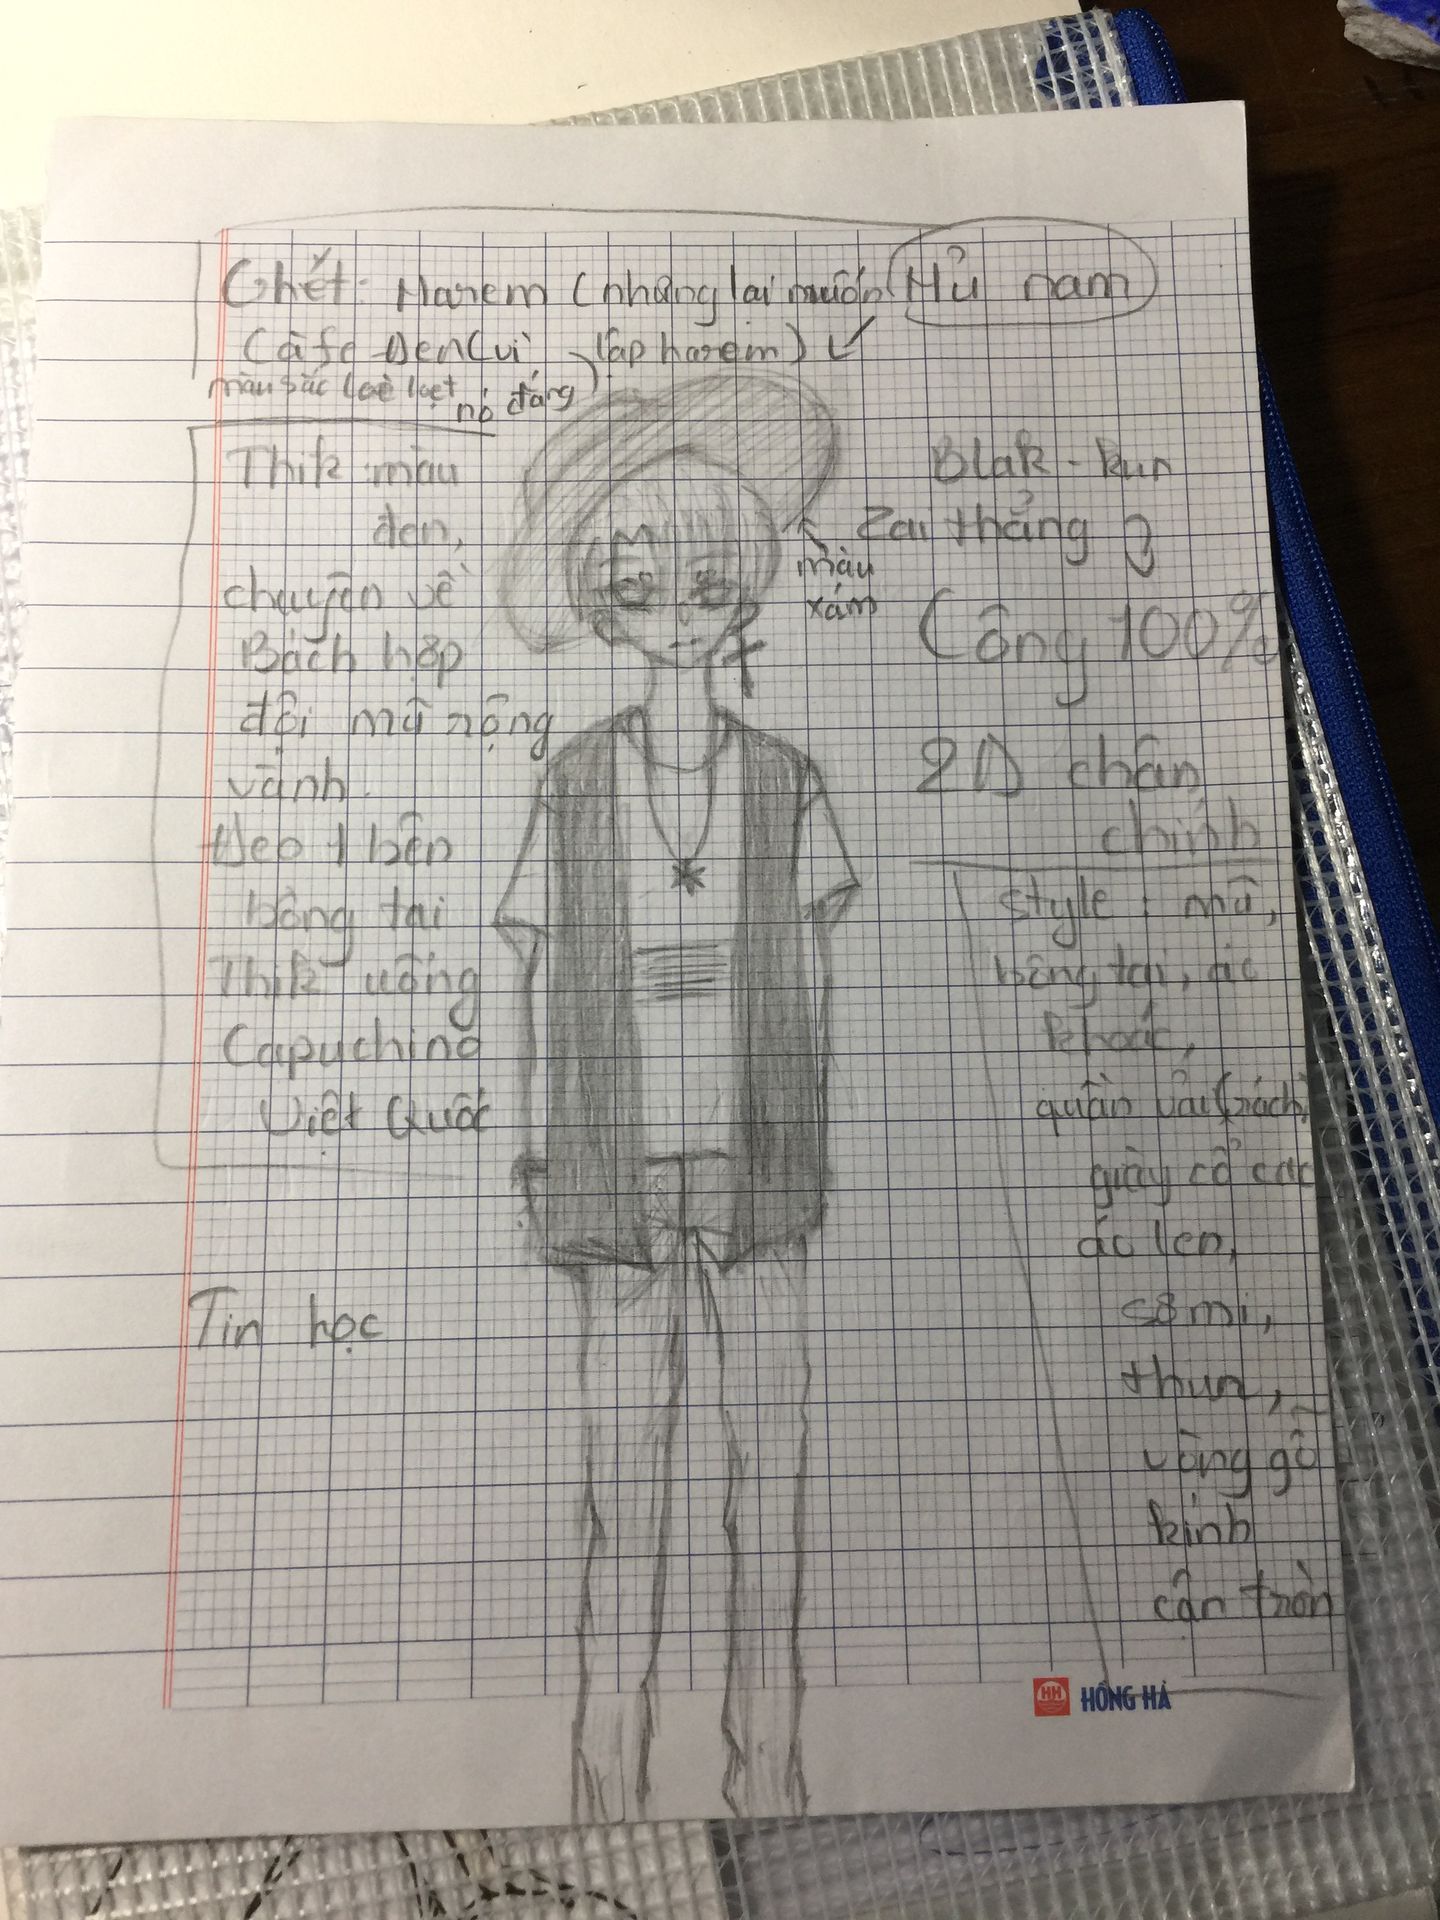 Ghét: Harem (nhưng lại muốn
lập harem)
Hủ nam
Càfe Đen (vì
nó đắng)
màu sắc loè loẹt
Thik màu
đen,
chuyện về
Bách hợp
đội mũ rộng
vành.
Đeo 1 bên
bông tai
Thik uống
Capuchino
Việt Quốc
Tin học
Blak-kun
Zai thẳng
màu
xám
Công 100%
2D chân
chính
style: mũ,
bông tai, áo
khoác,
quần vải (rách)
giày cổ cao
áo len,
sơ mi,
thun,
vòng gỗ
kính
cận tròn
HH HỒNG HÀ